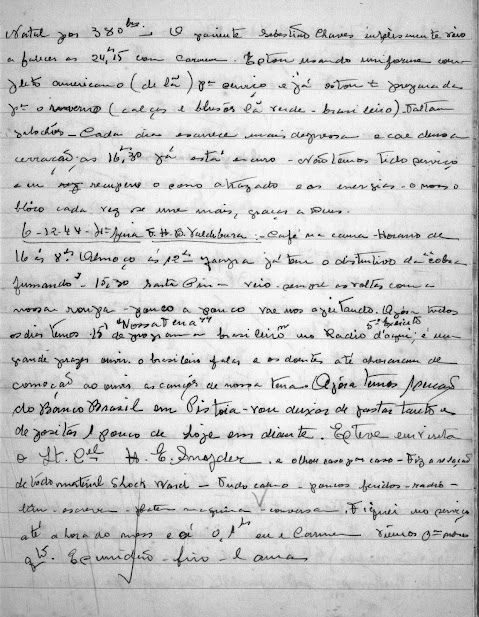 Natal por 380 hrs — O paciente Sebastião Chaves infelizmente veio
a falecer as 24,15 com Carmen. Estou usando uniforme com
pleto americano (de lã) pª serviço e já estou preparada
pª o inverno (calças e blusões lã verde - brasileiro). Faltam
galochas - Cada dia escurece mais depressa e cae densa
cerração, as 16,30 já está escuro - Não temos tido serviço
e eu recupero o sono atrazado e as energias - o nosso
bloco cada vez se une mais, graças a Deus.
6-12-44 - 4ª feira F. H. B Valdibura :- Café na cama - Horario de
16 ás 8 hs. Almoço ás 12 hs já tem o distintivo da "cobra
fumando" - 15,30 Santa veio sempre as voltas com a
nossa roupa - pouco a pouco vae nos ageitando. Agora todos
os dias temos 15' de programa brasileiro no Radio d'aqui, é um
"Nossa Terra" 5º Exercito
grande prazer ouvir o brasileiro falar e os doentes até choraram de
comoção ao ouvir as canções de nossa terra. Agora temos
do Banco Brasil em Pistoia - vou deixar de gastar tanto e
depositar 1 pouco de hoje em diante. Esteve em visita
o Lt. Cel H. E. Snyder e olhou caso por caso - Fiz a relação
de todo material Shock Ward - Tudo calmo - poucos feridos - radio -
lêm - escreve - batem maquina - conversa. Fiquei no serviço
até a hora do e á 0,1 hs eu e Carmen viemos pª
qto. E umidão - frio - lama